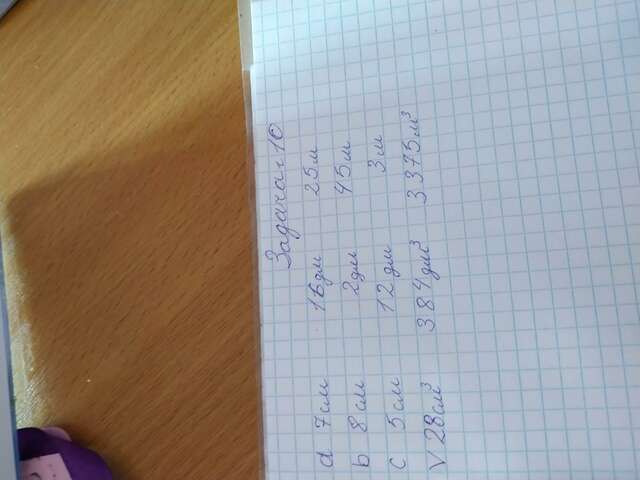 Задача 10
a 7см 16дм 25м
b 8см 2дм 45м
c 5см 12дм 3м
V 28см³ 384дм³ 3375м³